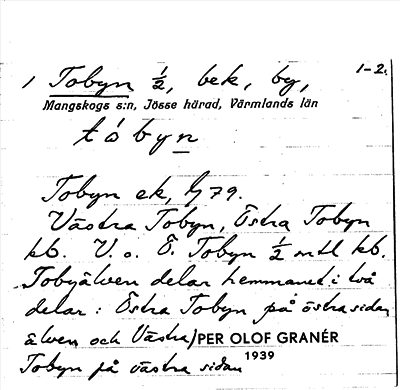 1 Tobyn ½, bek, by, 1-2.
Mangskogs s:n, Jösse härad, Värmlands län
tóbyn
Tobyn ek, G 79.
Västra Tobyn, Östra Tobyn
kb. V. o. Ö. Tobyn ½ mtl kb.
Tobyälven delar hemmanet i två
delar: Östra Tobyn på östra sidan
älven och Västra / PER OLOF GRANÉR
Tobyn på västra sidan 1939